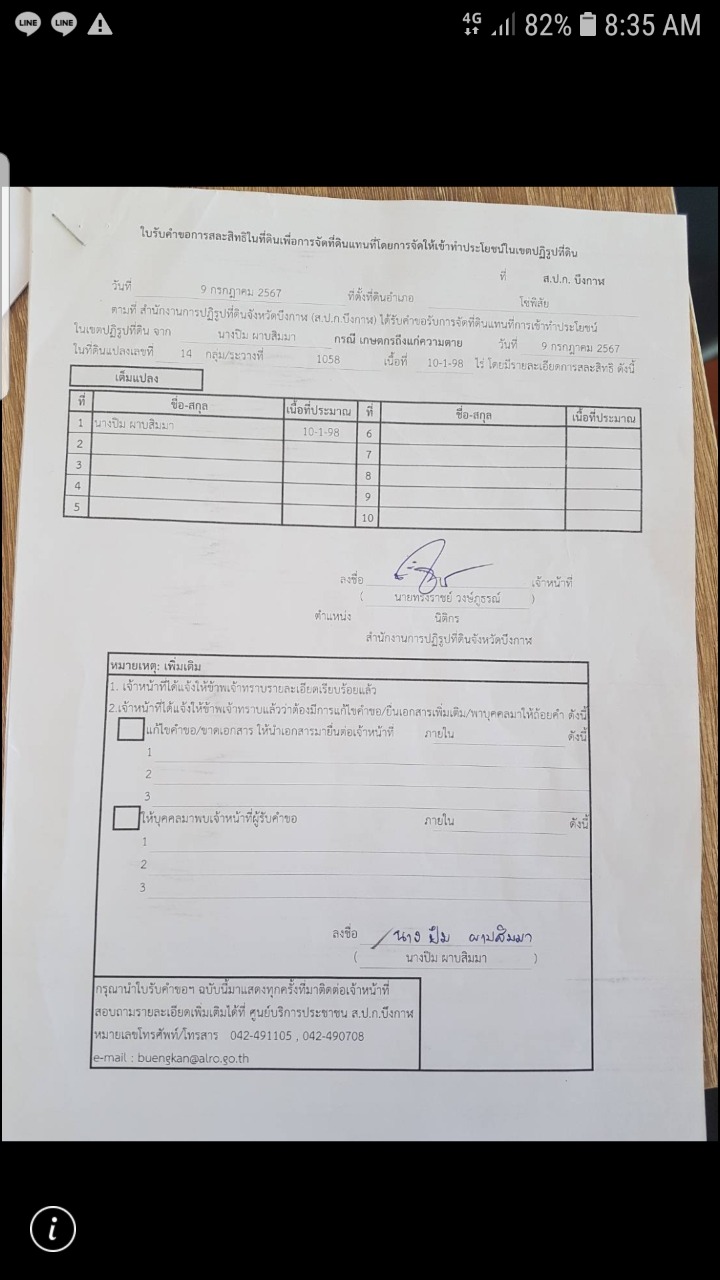 LINE LINE 4G 82% 8:35 AM
ใบรับคำขอการสละสิทธิในที่ดินเพื่อการจัดที่ดินแทนที่โดยการจัดให้เข้าทำประโยชน์ในเขตปฏิรูปที่ดิน
ที่ ส.ป.ก. บึงกาฬ
วันที่ 9 กรกฎาคม 2567 ที่ตั้งที่ดินอำเภอ โซพิสัย
ตามที่ สำนักงานการปฏิรูปที่ดินจังหวัดบึงกาฬ (ส.ป.ก.บึงกาฬ) ได้รับคำขอรับการจัดที่ดินแทนที่การเข้าทำประโยชน์
ในเขตปฏิรูปที่ดิน จาก นางปิม ผาบสิมมา กรณี เกษตรกรถึงแก่ความตาย วันที่ 9 กรกฎาคม 2567
ในที่ดินแปลงเลขที่ 14 กลุ่ม/ระวางที่ 1058 เนื้อที่ 10-1-98 ไร่ โดยมีรายละเอียดการสละสิทธิ ดังนี้
เต็มแปลง
ที่ ชื่อ-สกุล เนื้อที่ประมาณ ที่ ชื่อ-สกุล เนื้อที่ประมาณ
1 นางปิม ผาบสิมมา 10-1-98 6
2 7
3 8
4 9
5 10
ลงชื่อ เจ้าหน้าที่
( นายทรงราชย์ วงษ์ภูธรณ์ )
ตำแหน่ง นิติกร
สำนักงานการปฏิรูปที่ดินจังหวัดบึงกาฬ
หมายเหตุ: เพิ่มเติม
1. เจ้าหน้าที่ได้แจ้งให้ข้าพเจ้าทราบรายละเอียดเรียบร้อยแล้ว
2.เจ้าหน้าที่ได้แจ้งให้ข้าพเจ้าทราบแล้วว่าต้องมีการแก้ไขคำขอ/ยื่นเอกสารเพิ่มเติม/พาบุคคลมาให้ถ้อยคำ ดังนี้
แก้ไขคำขอ/ขาดเอกสาร ให้นำเอกสารมายื่นต่อเจ้าหน้าที่ ภายใน ดังนี้
1
2
3
ให้บุคคลมาพบเจ้าหน้าที่ผู้รับคำขอ ภายใน ดังนี้
1
2
3
ลงชื่อ นาง ปิม ผาบสิมมา
( นางปิม ผาบสิมมา )
กรุณานำใบรับคำขอฯ ฉบับนี้มาแสดงทุกครั้งที่มาติดต่อเจ้าหน้าที่
สอบถามรายละเอียดเพิ่มเติมได้ที่ ศูนย์บริการประชาชน ส.ป.ก.บึงกาฬ
หมายเลขโทรศัพท์/โทรสาร 042-491105 , 042-490708
e-mail : buengkan@alro.go.th